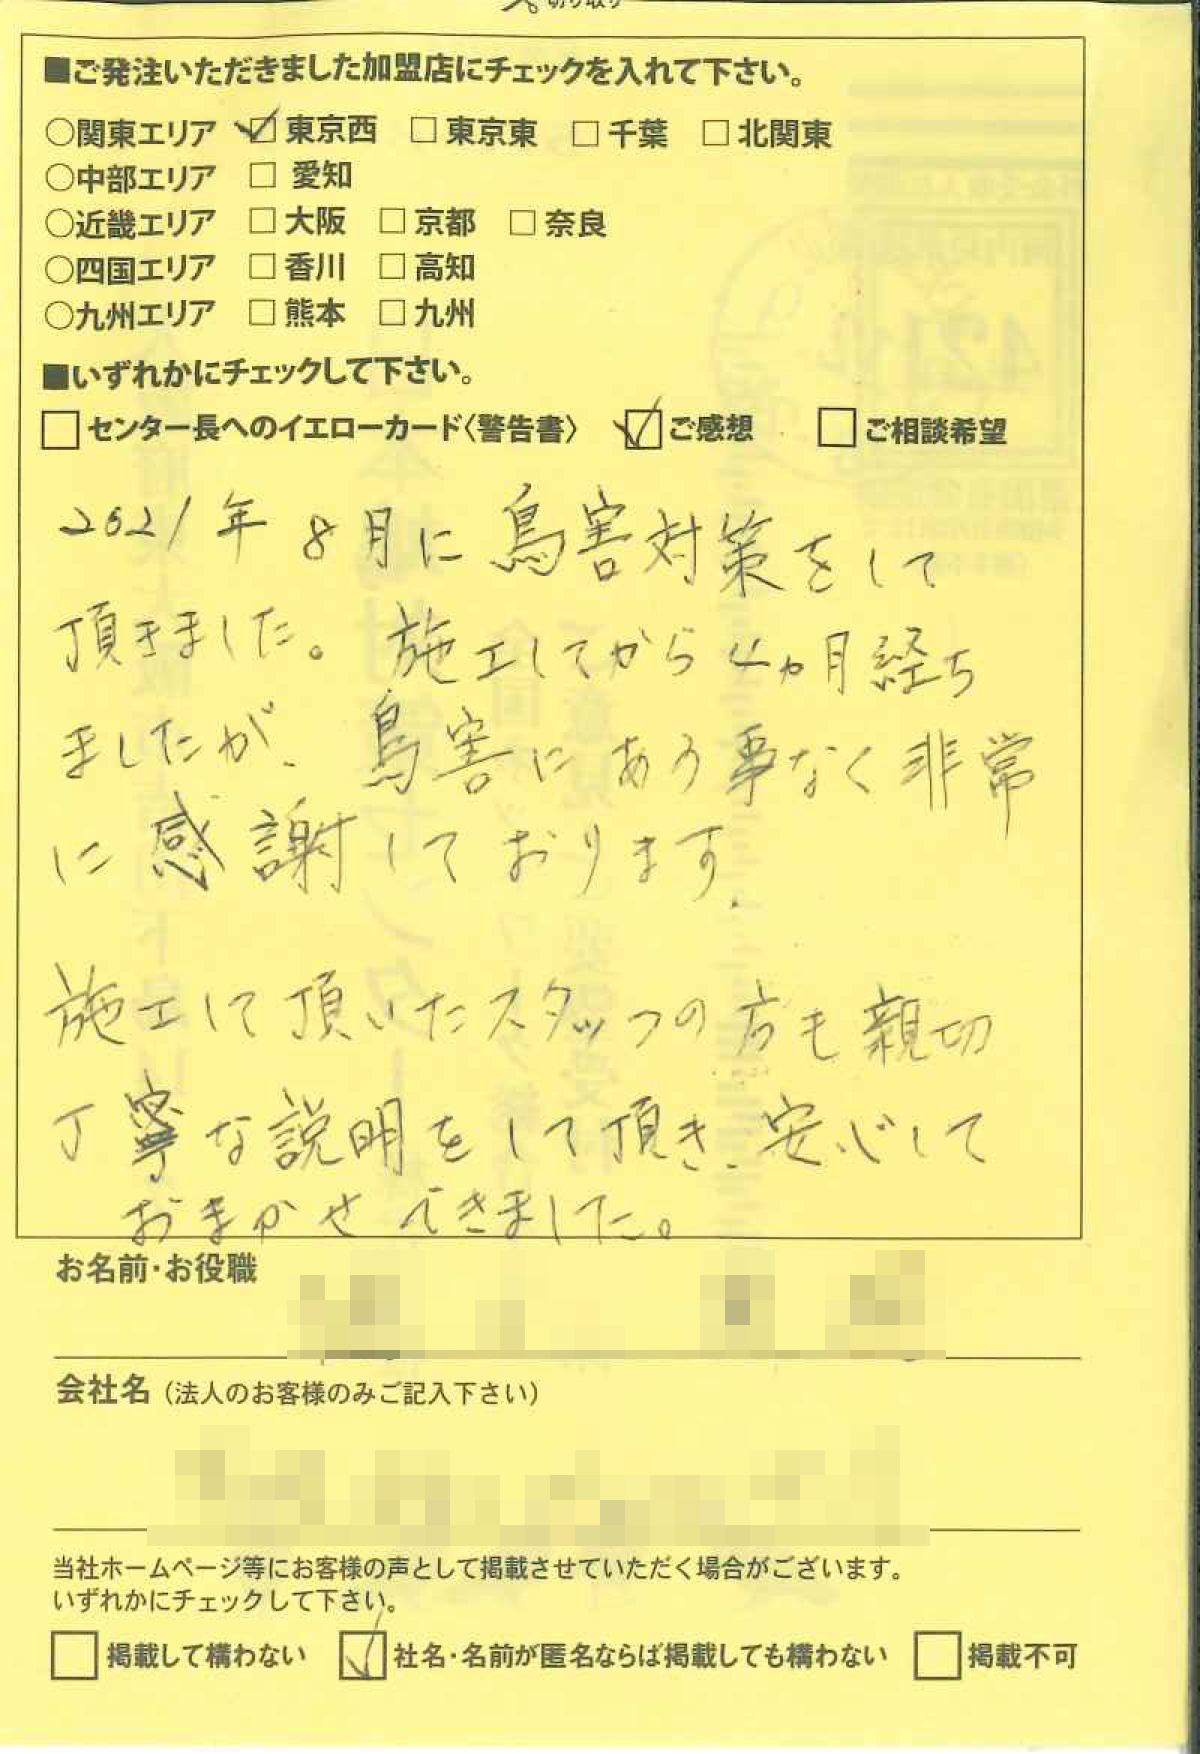 切り取り
■ご発注いただきました加盟店にチェックを入れて下さい。
○関東エリア ☑ 東京西 □ 東京東 □ 千葉 □ 北関東
○中部エリア □ 愛知
○近畿エリア □ 大阪 □ 京都 □ 奈良
○四国エリア □ 香川 □ 高知
○九州エリア □ 熊本 □ 九州
■いずれかにチェックして下さい。
□ センター長へのイエローカード〈警告書〉 ☑ ご感想 □ ご相談希望
2021年8月に鳥害対策をして
頂きました。施工してから4ヵ月経ち
ましたが、鳥害にあう事なく非常
に感謝しております。
施工して頂いたスタッフの方も親切
丁寧な説明をして頂き、安心して
おまかせできました。
お名前・お役職
会社名（法人のお客様のみご記入下さい）
当社ホームページ等にお客様の声として掲載させていただく場合がございます。
いずれかにチェックして下さい。
□ 掲載して構わない ☑ 社名・名前が匿名ならば掲載しても構わない □ 掲載不可